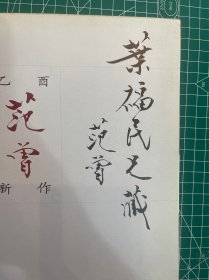 葉福民兄藏
范曾
乙酉
范曾
新作